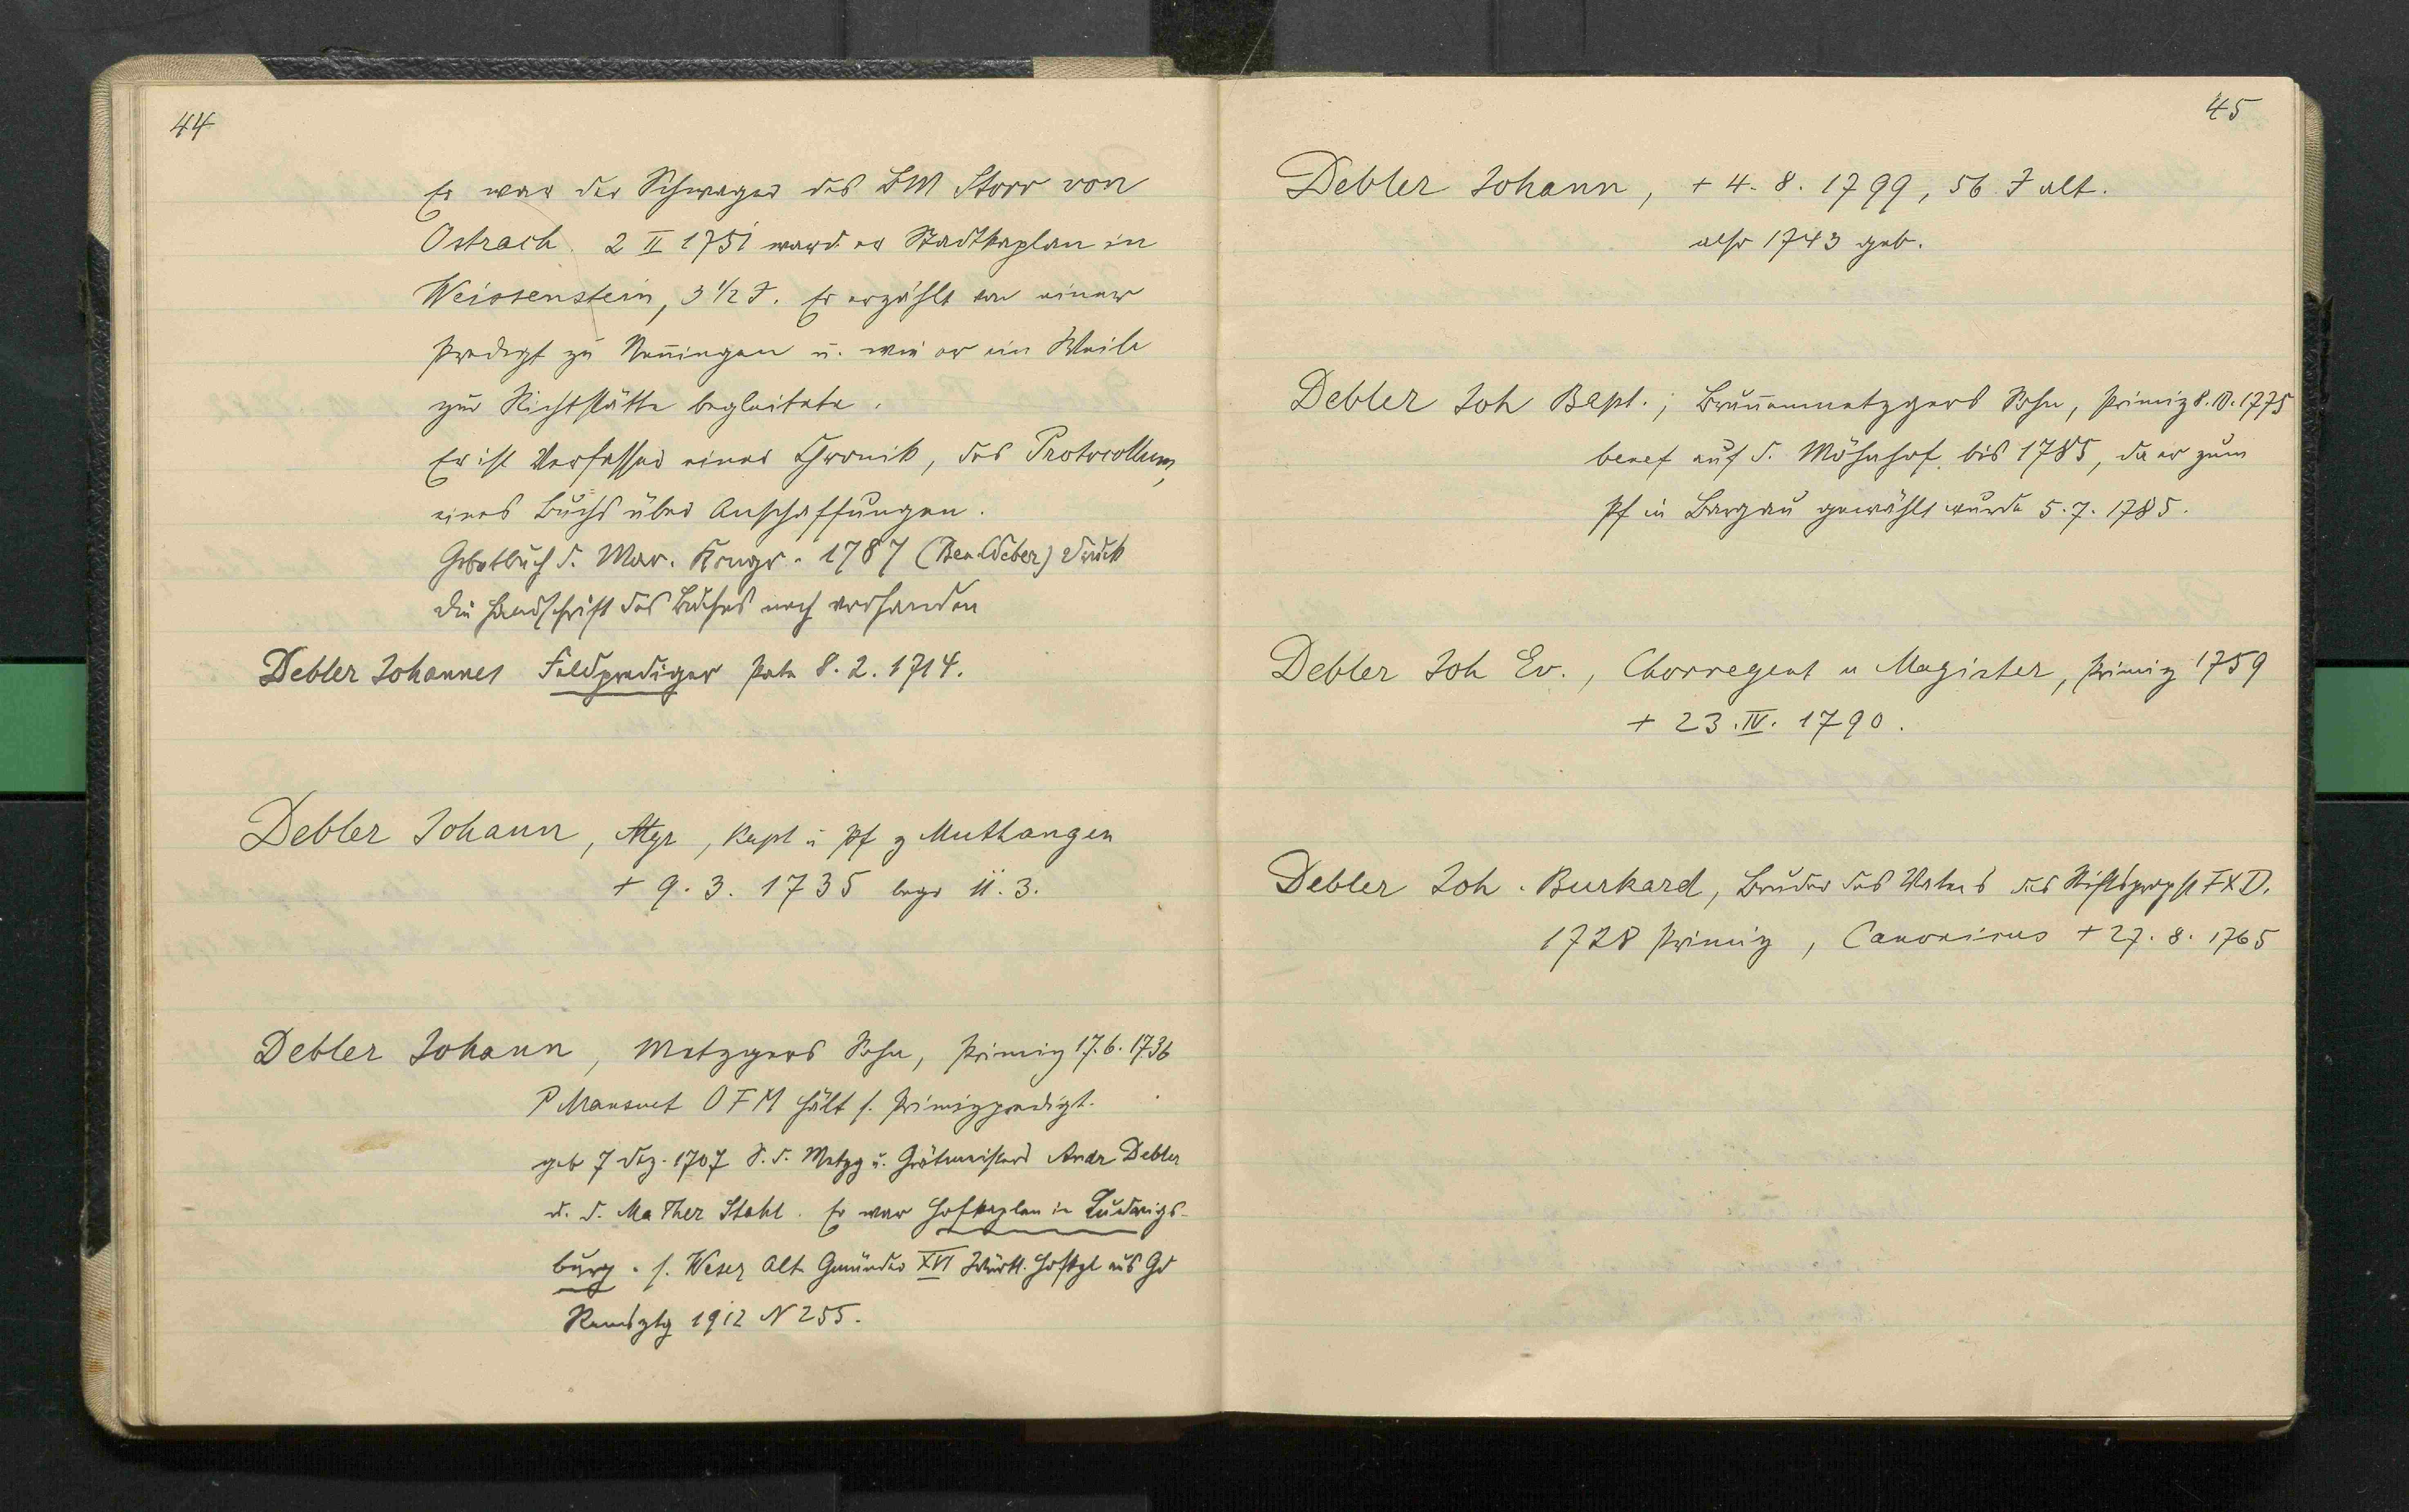 44
Er war der Schwager des BM Storr von
Ostrach. 2 II 1751 ward er Stadtkaplan in
Weissenstein, 3 1/2 J. Er erzählt von einer
Predigt zu Nen̄ingen u. wie er ein Weib
zur Richtstätte begleitete.
Er ist Verfasser einer Chronik, des Protocollum,
eines Buchs über Anschaffungen.
Gebetbuch d. Mar. Kongr. 1787 Druck
Die Handschrift des Buches noch vorhanden
Debler Johannes Feldprediger Pate 8. 2. 1714.
Debler Johann, Mgr, Kapl u Pf z Muthlangen
+ 9. 3. 1735 begr 11. 3.
Debler Johann, Metzgers Sohn, Primiz 17. 6. 1736
P Mansuet OFM hält s. Primizpredigt.
geb 7 Dez. 1707 S. d. Metzg u. Grätmeisters Andr Debler
u. d. Ma Ther Stahl. Er war Hofkaplan in Ludwigs-
burg. s. Weser Alt Gmünder XVI Württ. Hofkpl aus Gd
Remsztg 1912 N 255.
45
Debler Johann, + 4. 8. 1799, 56 J alt.
also 1743 geb.
Debler Joh Bapt.; Brun̄enmetzgers Sohn, Primiz 8. 10. 1775
benef auf d. Möhnhof bis 1785, da er zum
Pf in Bargau gewählt wurde 5. 7. 1785.
Debler Joh Ev., Chorregent u Magister, Primiz 1759
+ 23. IV. 1790.
Debler Joh. Burkard, Bruder des Vaters des Stiftspropst FXD.
1728 Primiz, Canonicus + 27. 8. 1765